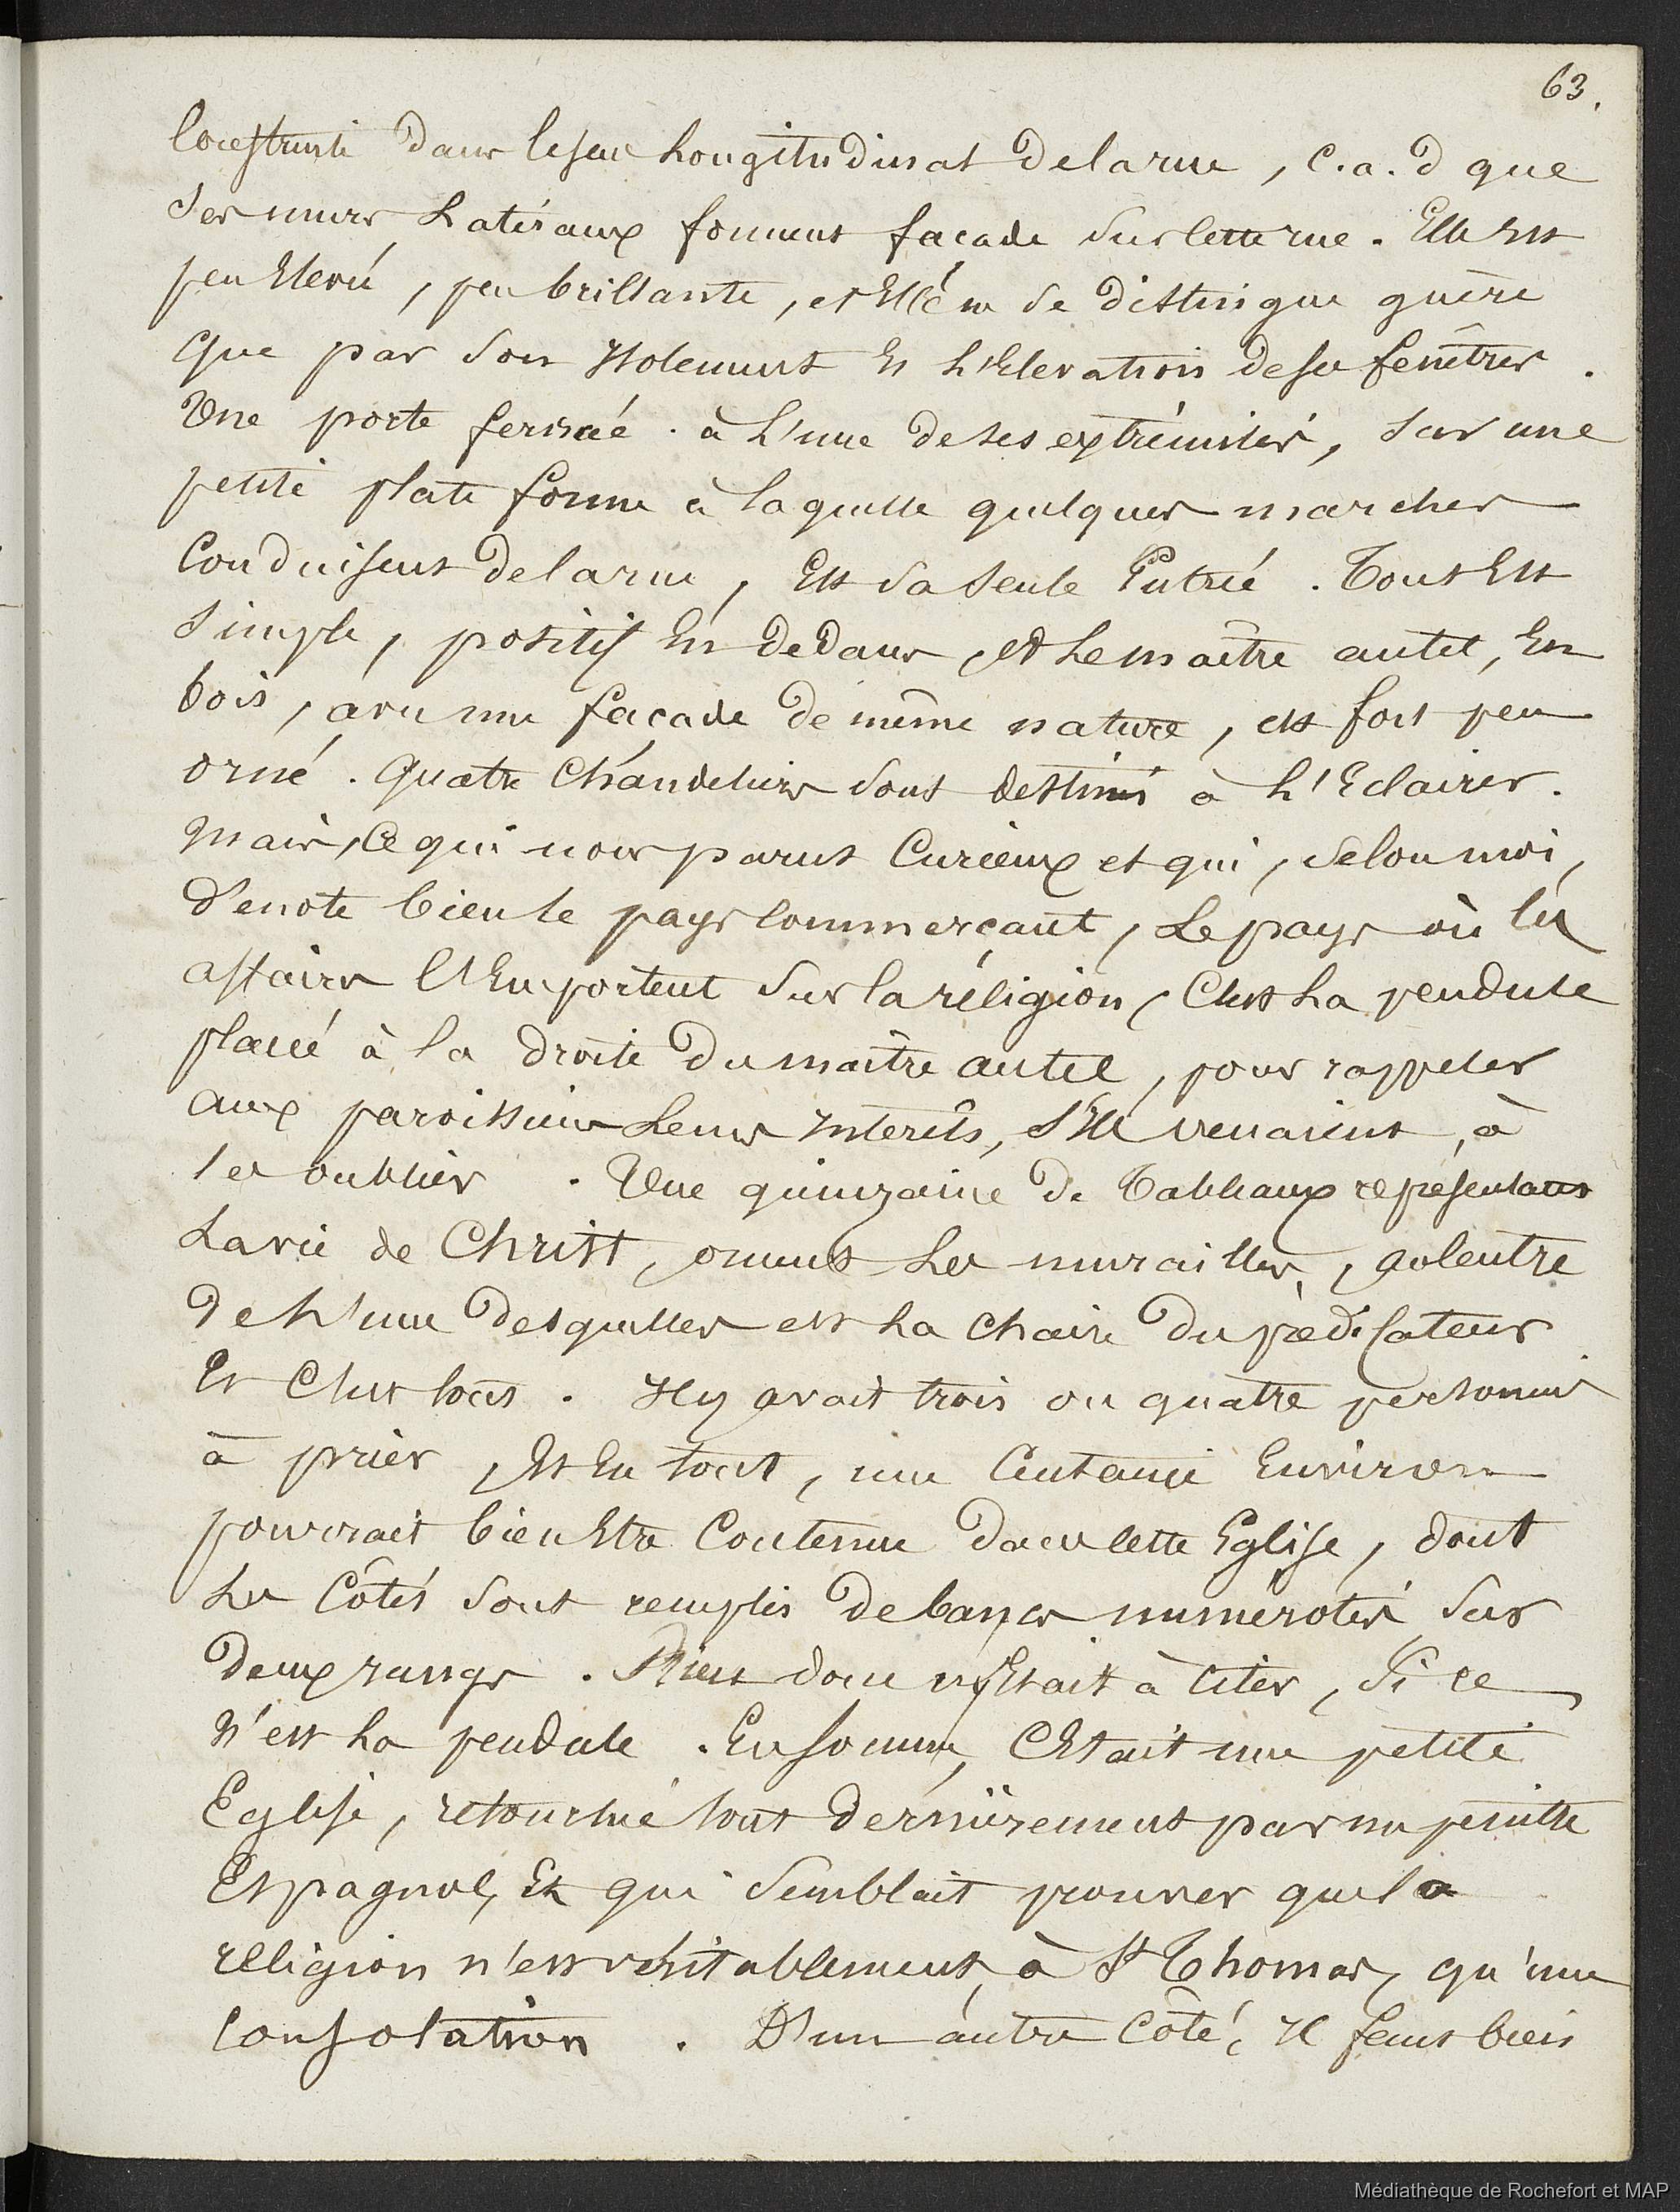 63.
Construite dans le sens Longitudinal de la rue, c.a.d que
Ses murs Latéraux forment façade Sur Cette rue. Elle Est
peu Elevée, peu brillante, et Elle ne Se distingue guère
Que par Son Isolement Et L'Elevation de ses fenêtres.
Une porte fermée à L'une de ses extrémités, Sur une
petite plate forme à Laquelle quelques marches
Conduisent de la rue, Est Sa Seule Entrée. Tout Est
Simple, positif En dedans, et Le maître autel, En
bois, avec une façade de même nature, est fort peu
orné. Quatre Chandeliers Sont destinés à L'Eclairer.
Mais, Ce qui nous parut Curieux et qui, Selon moi,
dénote bien le pays Commerçant, Le pays où les
affaires L'Emportent Sur la réligion, C'est La pendule
placée à la droite du maître autel, pour rappeler
aux paroissiens Leurs Interêts, S'Ils venaient à
les oublier. Une quinzaine de Tableaux représentant
La vie de Christ, ornent Les murailles, au Centre
de L'une desquelles est La chaire du prédicateur
Et C'est tout. Il y avait trois ou quatre personnes
à prier, Et En tout, une Centaine Environ
pourrait bien Etre Contenue dans Cette Eglise, dont
Les Côtés Sont remplis de bancs numérotés Sur
Deux rangs. Rien donc n'Etait à Citer, Si ce
N'est La pendule. En Somme, C'Etait une petite
Eglise, retouchée tout dernièrement par un peintre
Espagnol, Et qui Semblait prouver que la
religion n'est véritablement, à St Thomas, qu'une
Consolation. D'un autre Côté, Il faut bien
Médiathèque de Rochefort et MAP